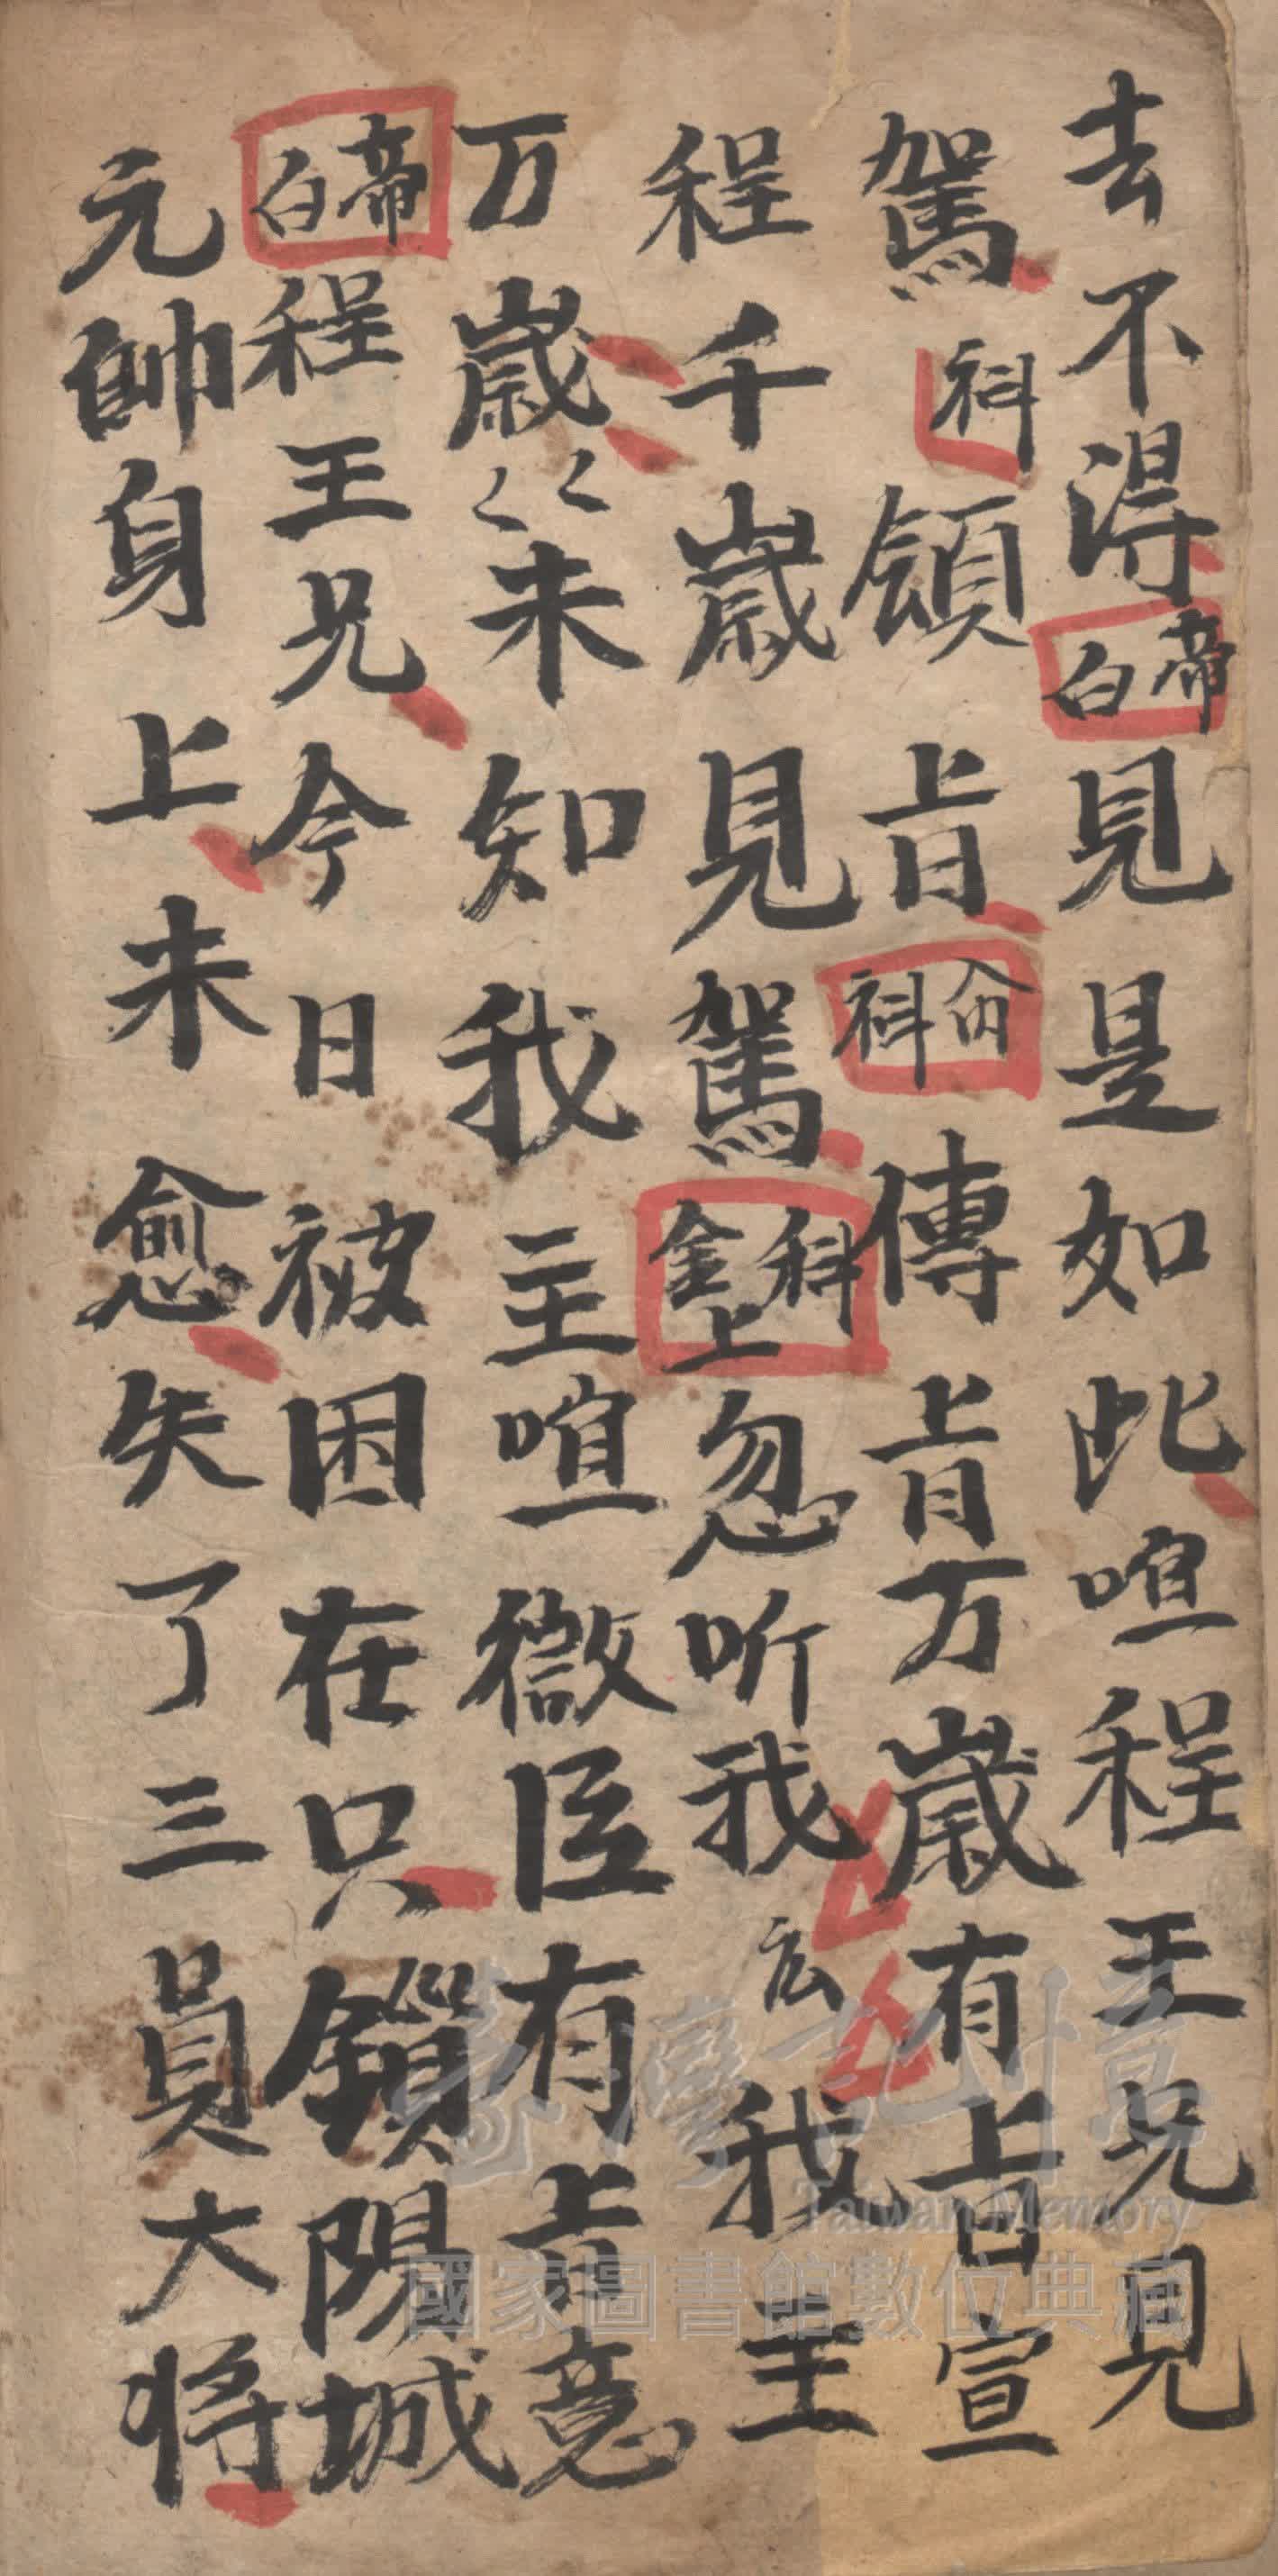 去不得帝白見是如此喧程王兄見
駕科領旨科傳旨万歲有旨宣
程千歲見駕科金上忽听我玄我主
万歲〻〻未知我主喧微臣有旨意
帝白程王兄今日被困在只鎖陽城
元帥身上未愈失了三員大将
臺灣記憶
Taiwan Memory
國家圖書館數位典藏